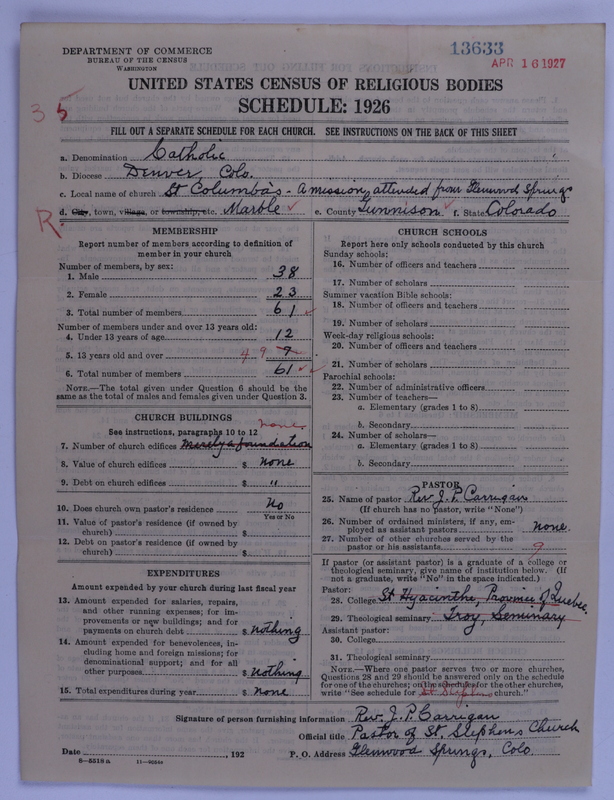 DEPARTMENT OF COMMERCE
BUREAU OF THE CENSUS
WASHINGTON
13633
APR 16 1927
UNITED STATES CENSUS OF RELIGIOUS BODIES
SCHEDULE: 1926
35
FILL OUT A SEPARATE SCHEDULE FOR EACH CHURCH. SEE INSTRUCTIONS ON THE BACK OF THIS SHEET
a. Denomination Catholic
b. Diocese Denver, Colo.
c. Local name of church St Columba's - A mission, attended from Glenwood Springs
R.
d. City, town, village, or township, etc. Marble e. County Gunnison f. State Colorado
MEMBERSHIP
Report number of members according to definition of member in your church
Number of members, by sex:
1. Male 38
2. Female 23
3. Total number of members 61
Number of members under and over 13 years old:
4. Under 13 years of age 12
5. 13 years old and over 49 7
6. Total number of members 61
NOTE.—The total given under Question 6 should be the same as the total of males and females given under Question 3.
CHURCH BUILDINGS
See instructions, paragraphs 10 to 12
none
7. Number of church edifices Merely a foundation
8. Value of church edifices $ none
9. Debt on church edifices $ "
10. Does church own pastor's residence No
Yes or No
11. Value of pastor's residence (if owned by church) $
12. Debt on pastor's residence (if owned by church) $
EXPENDITURES
Amount expended by your church during last fiscal year
13. Amount expended for salaries, repairs, and other running expenses; for improvements or new buildings; and for payments on church debt $ nothing
14. Amount expended for benevolences, including home and foreign missions; for denominational support; and for all other purposes $ nothing
15. Total expenditures during year $ none
CHURCH SCHOOLS
Report here only schools conducted by this church
Sunday schools:
16. Number of officers and teachers
17. Number of scholars
Summer vacation Bible schools:
18. Number of officers and teachers
19. Number of scholars
Week-day religious schools:
20. Number of officers and teachers
21. Number of scholars
Parochial schools:
22. Number of administrative officers
23. Number of teachers—
a. Elementary (grades 1 to 8)
b. Secondary
24. Number of scholars—
a. Elementary (grades 1 to 8)
b. Secondary
PASTOR
25. Name of pastor Rev. J. P. Carrigan
(If church has no pastor, write "None")
26. Number of ordained ministers, if any, employed as assistant pastors none.
27. Number of other churches served by the pastor or his assistants 9
If pastor (or assistant pastor) is a graduate of a college or theological seminary, give name of institution below. (If not a graduate, write "No" in the space indicated.)
Pastor:
28. College St Hyacinthe, Province of Quebec
29. Theological seminary Troy, Seminary
Assistant pastor:
30. College
31. Theological seminary
NOTE.—Where one pastor serves two or more churches, Questions 28 and 29 should be answered only on the schedule for one of the churches; on the schedules for the other churches, write "See schedule for St Stephens church."
Signature of person furnishing information Rev. J. P. Carrigan
Official title Pastor of St. Stephens Church
Date , 192 P. O. Address Glenwood Springs, Colo
8—5518a 11—9054a